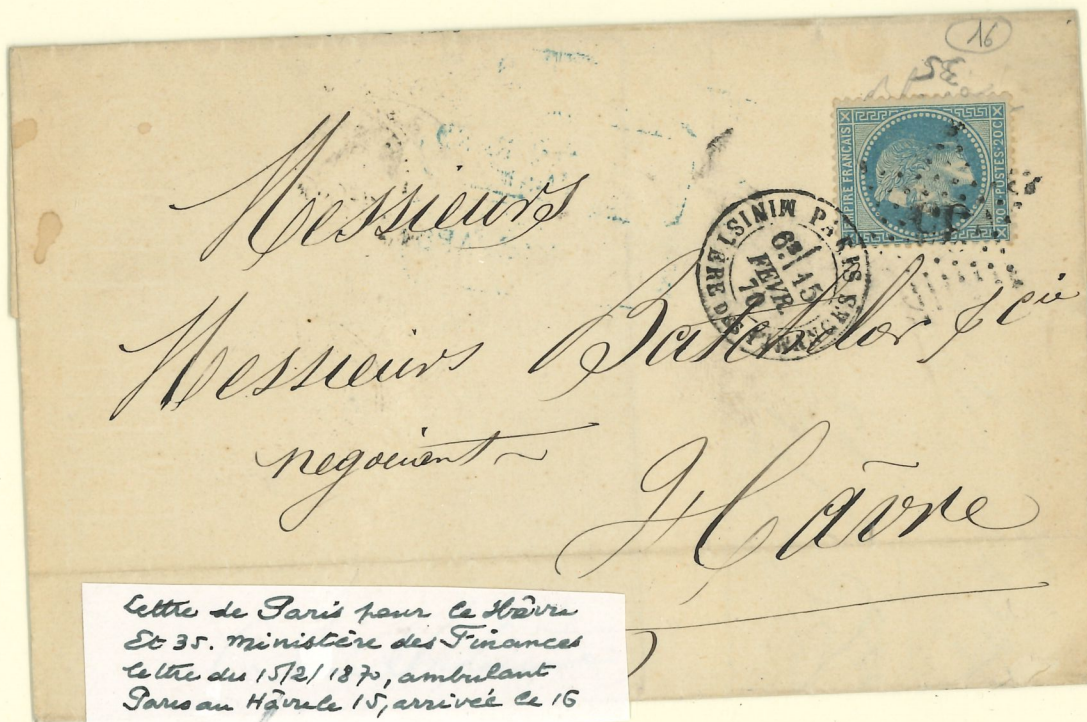 16
35
EMPIRE FRANÇAIS
20 C POSTES 20 C
PARIS MINISTÈRE DES FINANCES
6E
15
FEVR.
70
Messieurs
Messieurs Batchelor & cie
negociant
Hâvre
lettre de Paris pour le Hâvre
Et 35. Ministère des Finances
lettre du 15/2/1870, ambulant
Paris au Hâvre le 15, arrivée le 16